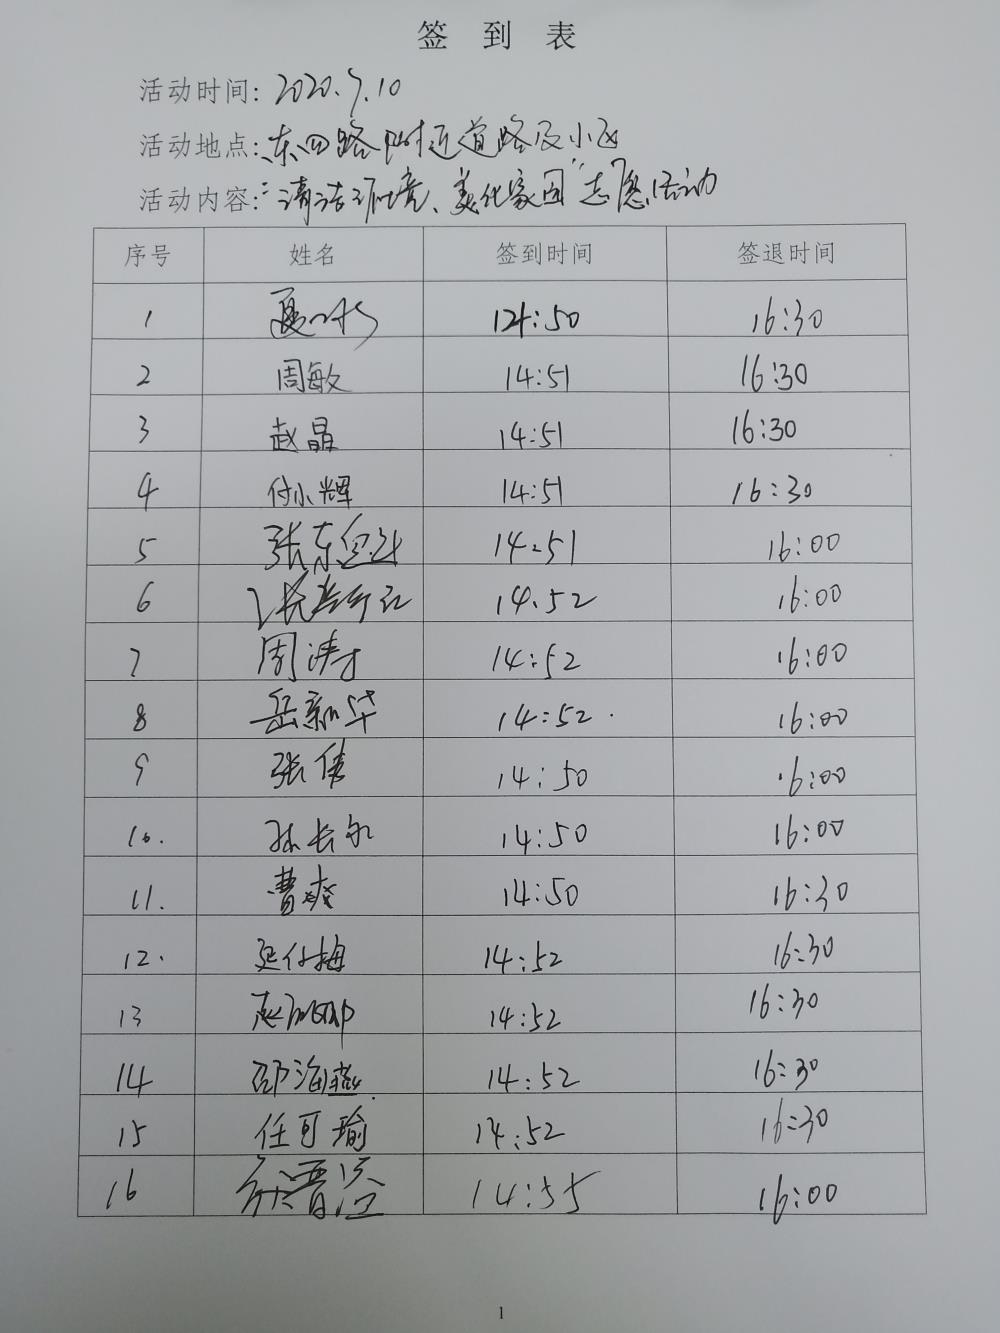 签 到 表
活动时间: 2020.9.10
活动地点: 东四路附近道路及小区
活动内容: "清洁环境、美化家园"志愿活动
序号 姓名 签到时间 签退时间
1 14:50 16:30
2 周敏 14:51 16:30
3 赵晶 14:51 16:30
4 付小辉 14:51 16:30
5 张东 14:51 16:00
6 张 14.52 16:00
7 周涛 14:52 16:00
8 岳新华 14:52 16:00
9 张倩 14:50 16:00
10. 孙长 14:50 16:00
11. 曹爽 14:50 16:30
12. 延付梅 14:52 16:30
13 赵 14:52 16:30
14 邵海燕 14:52 16:30
15 任可瑜 14:52 16:30
16 14:55 16:00
1